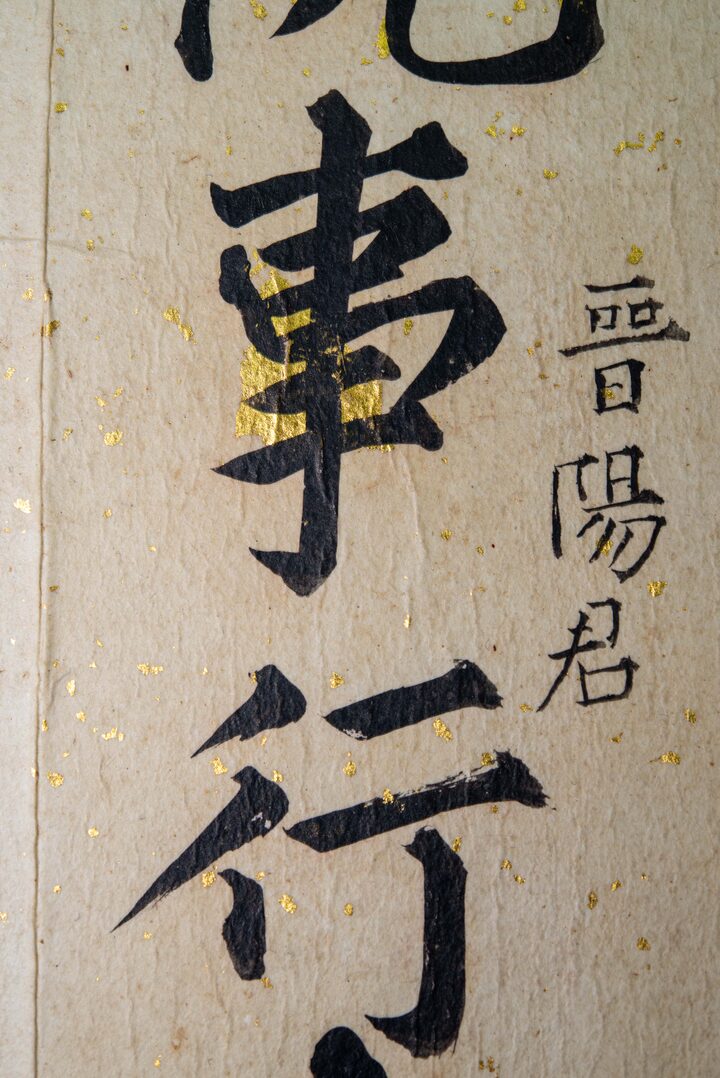 晉陽君
事行